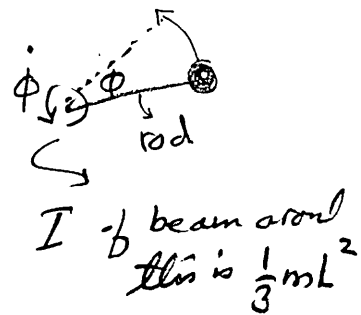 ϕ̇ ϕ
rod
I of beam around
this is 1/3 mL²